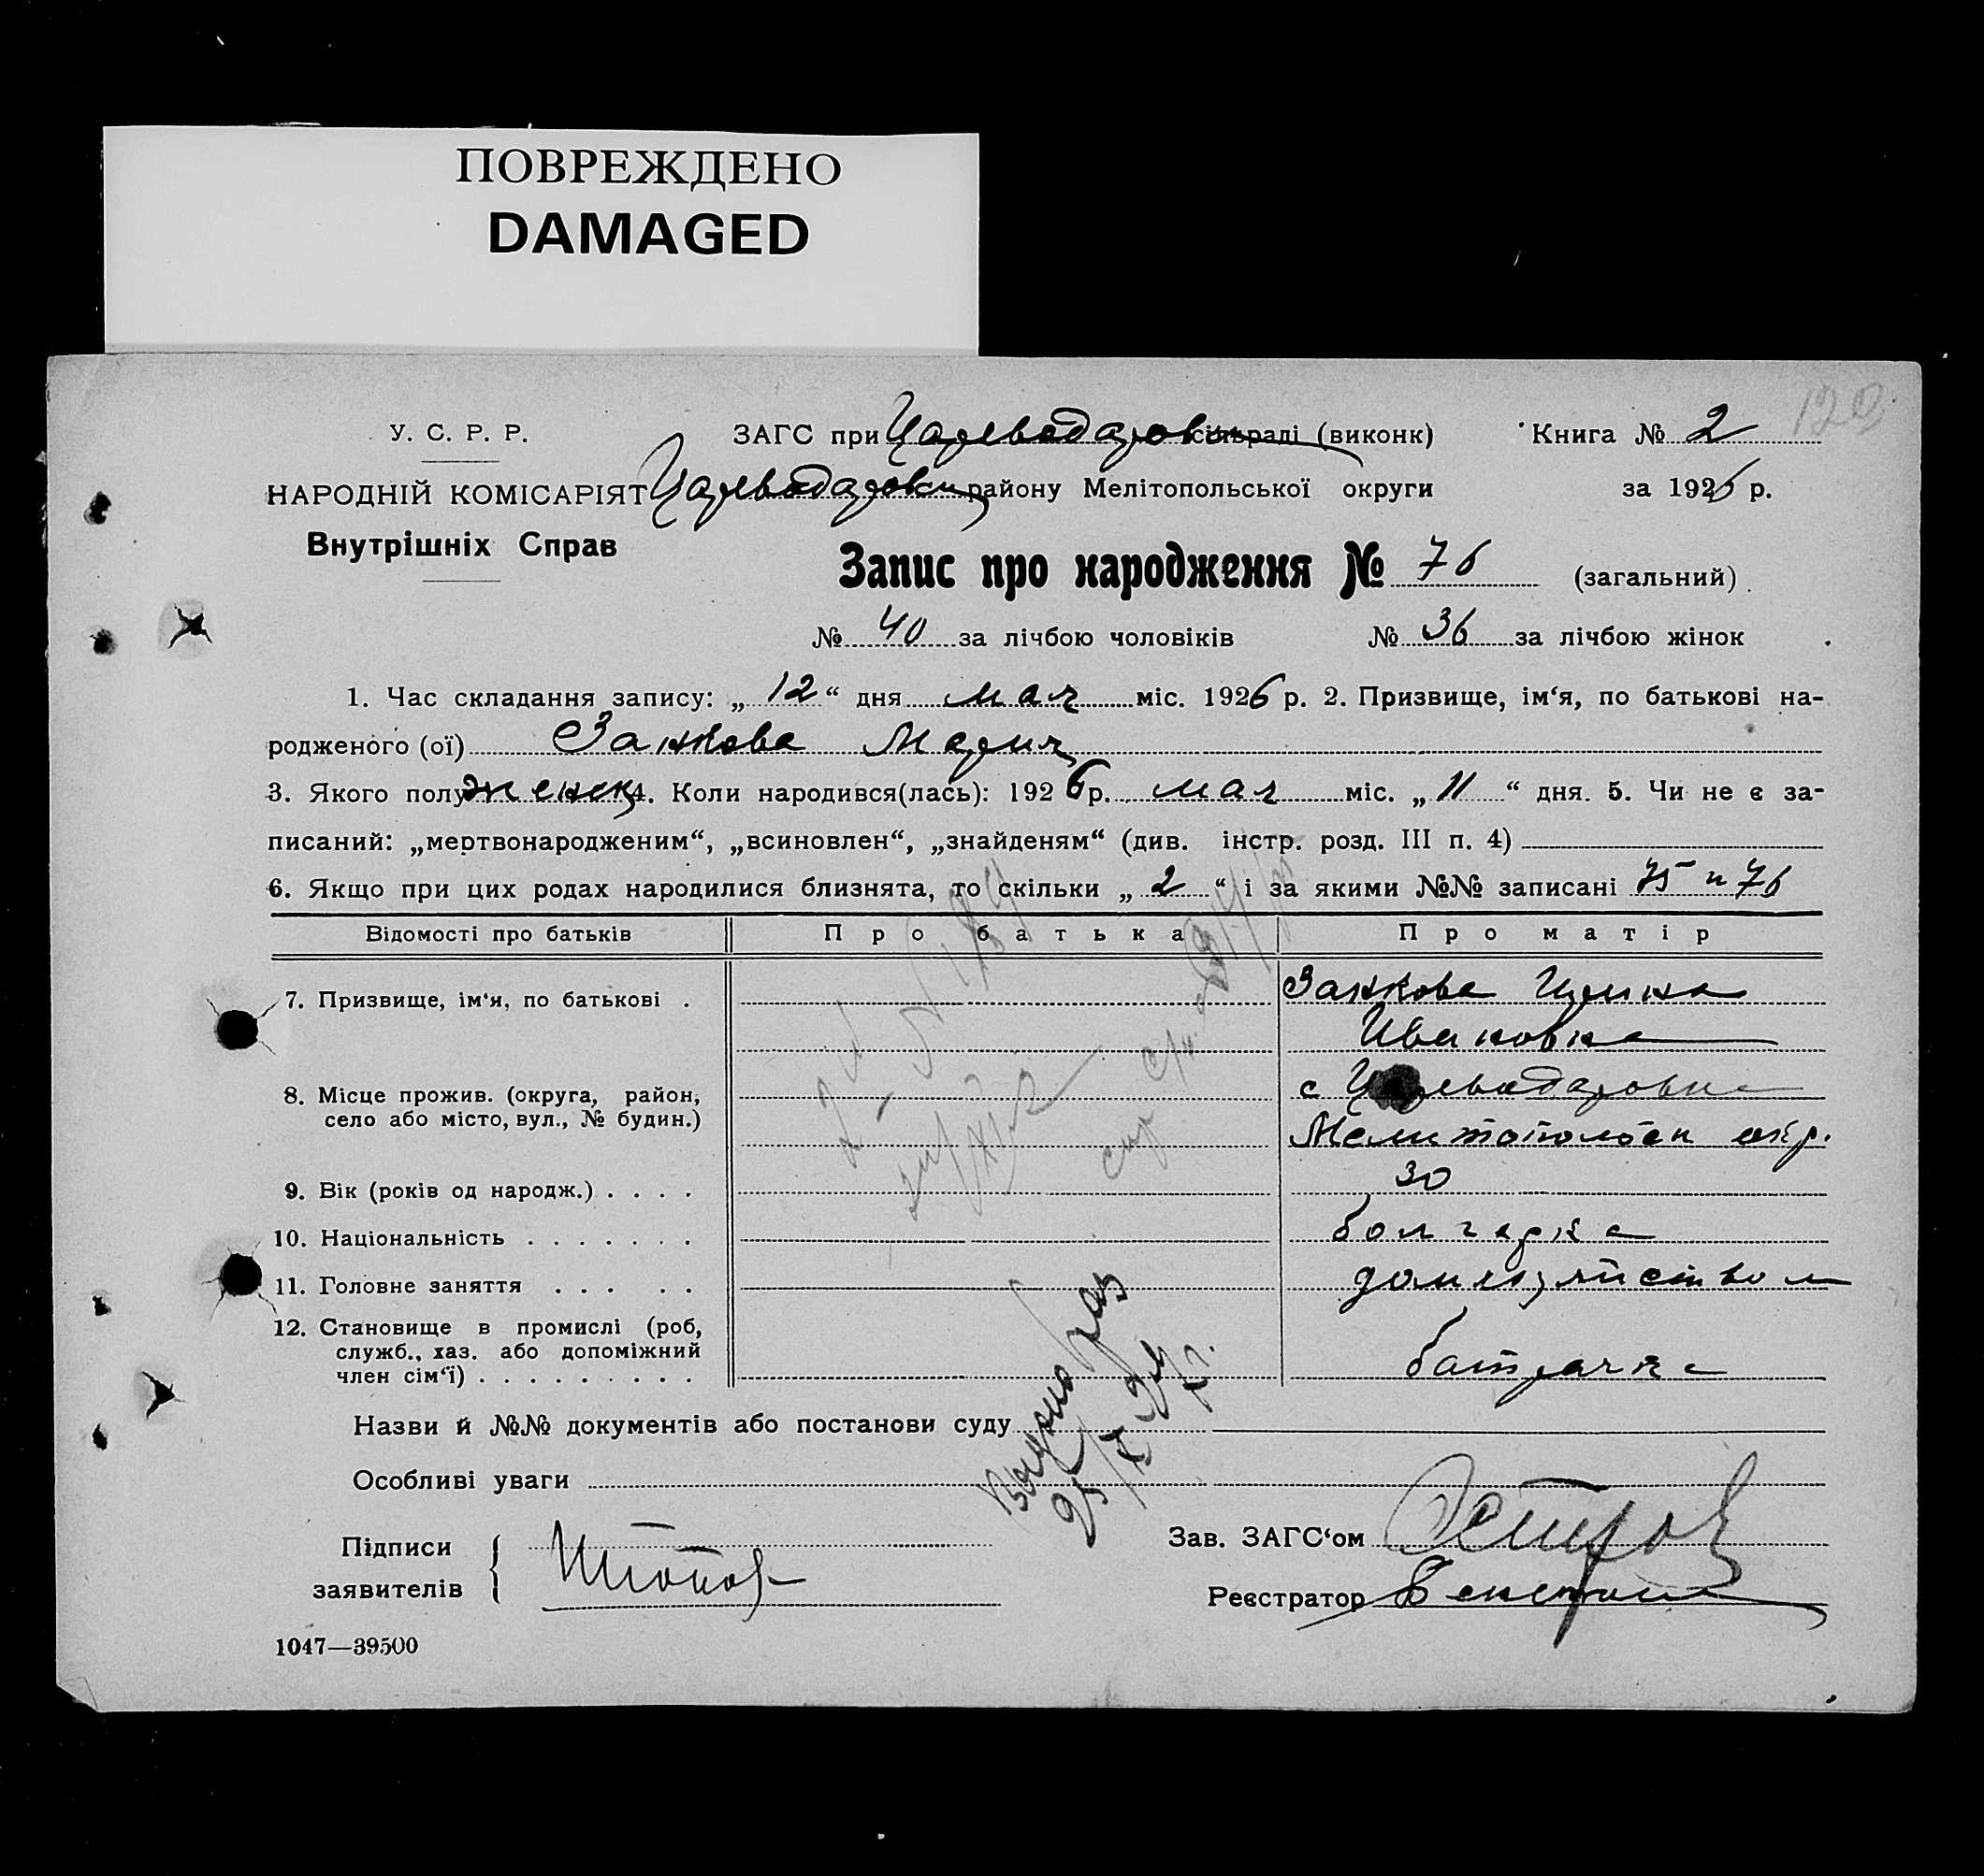 ПОВРЕЖДЕНО
DAMAGED
120
У. С. Р. Р.
ЗАГС при Цареводаровск сільраді (виконк)
Книга № 2
НАРОДНІЙ КОМІСАРІЯТ
Цареводаровск району Мелітопольської округи
за 1926 р.
Внутрішніх Справ
Запис про народження № 76 (загальний)
№ 40 за лічбою чоловіків № 36 за лічбою жінок
1. Час складання запису: „ 12 “ дня мая міс. 1926 р. 2. Призвище, ім‘я, по батькові на-
родженого (ої) Занкова Мария
3. Якого полу женск 4. Коли народився(лась): 1926 р. мая міс. „ 11 “ дня. 5. Чи не є за-
писаний: „мертвонародженим“, „всиновлен“, „знайденям“ (див. інстр. розд. III п. 4)
6. Якщо при цих родах народилися близнята, то скільки „ 2 “ і за якими №№ записані 75 и 76
Відомості про батьків Про батька Про матір
7. Призвище, ім‘я, по батькові . Занкова Ирина
Ивановна
8. Місце прожив. (округа, район, с Цареводаровка
село або місто, вул., № будин.) Мелитопольск окр.
9. Вік (років од народж.) . . . . 30
10. Національність . . . . . . . болгарка
11. Головне заняття . . . . .
12. Становище в промислі (роб,
служб., хаз. або допоміжний
член сім‘ї) . . . . . . . . . батрачка
Назви й №№ документів або постанови суду
Особливі уваги
Підписи
заявителів
Зав. ЗАГС‘ом
Реєстратор
1047—39500